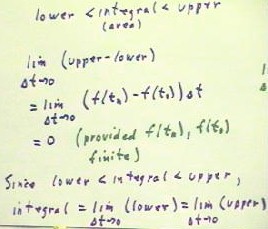 lower < integral < upper
(area)
lim (upper-lower)
Δt→0
= lim (f(tₙ)-f(t₀))Δt
Δt→0
= 0 (provided f(tₙ), f(t₀)
finite)
Since lower < integral < upper,
integral = lim (lower) = lim (upper)
Δt→0 Δt→0